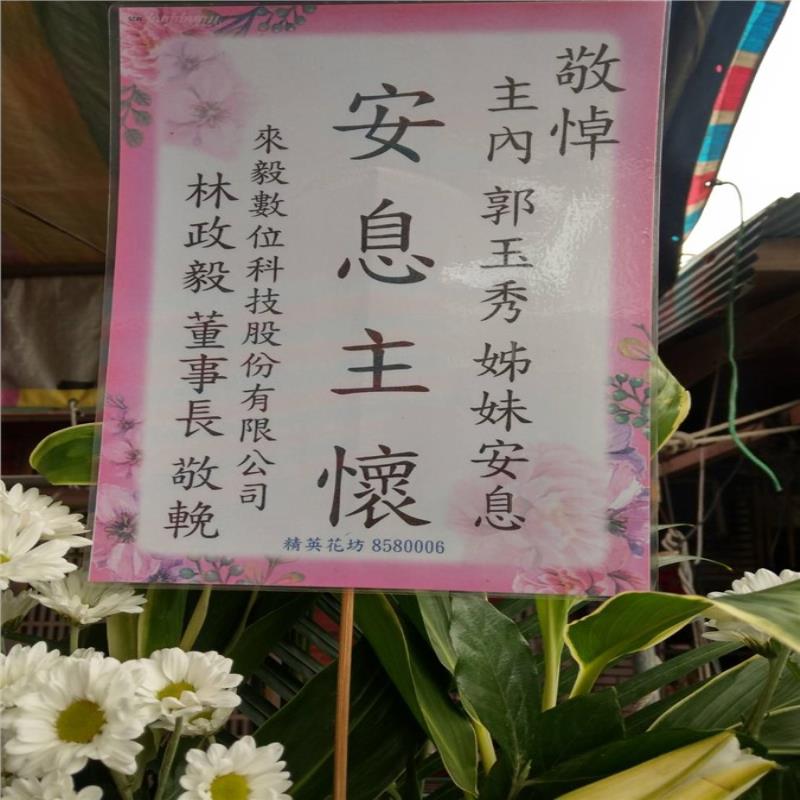 敬悼
主內 郭玉秀 姊妹安息
安息主懷
來毅數位科技股份有限公司
林政毅 董事長 敬輓
精英花坊 8580006